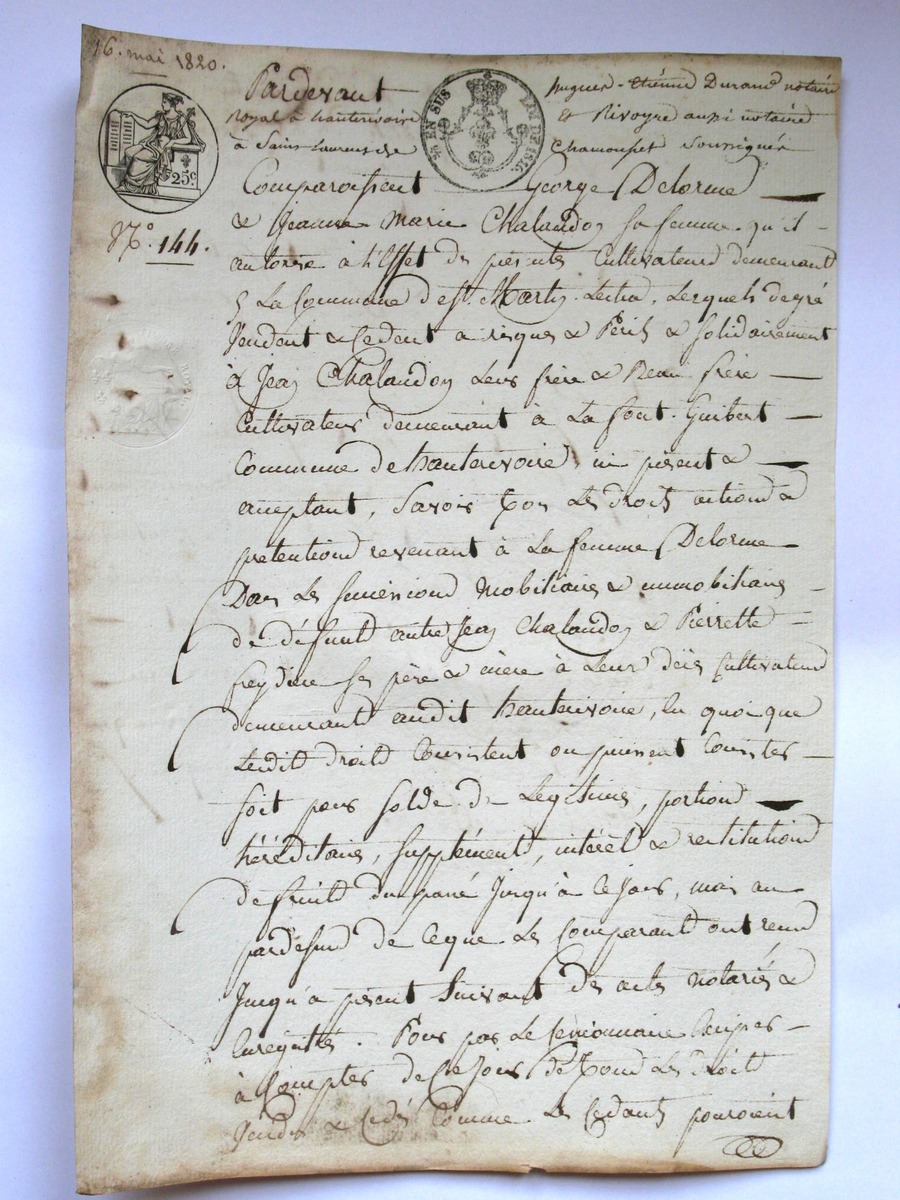 16. mai 1820.
Pardevant hugues - Etiénne Durand notaire
royal à hauterivoire & Rivoyre aussi notaire
à Saint Laurent de Chamousset soussignés
EN SUS
25c
Comparoissent George Delorme
N.o 144.
& Jeanne Marie Chalandon sa femme qu'il
autorise à l'Effet des présentes Cultivateurs demeurant
La Commune de St. Martin Lestra, Lesquels de gré
Vendent & Cedent a risques & Périls & solidairement
à Jean Chalandon Leur frère & Beau frère
Cultivateur demeurant à La font-Guibert
Commune de hauterivoire, ici présent &
acceptant, Savoir Tous Les Droits actions &
prétentions revenant à La femme Delorme
Dans Les successions Mobiliaires & immobiliaires
de défunt autre Jean Chalandon & Pierrette
freydière ses père & mère à Leur décès Cultivateurs
demeurant audit hauterivoire, En quoi que
Lesdits droits Consistent ou puissent Consister
soit pour solde de Legitimes, portions
héréditaires, supplément, intérêt & restitutions
de fruits du passé Jusqu'à Ce Jour, mais au
pardessus de Ceque Les Comparants ont rendu
Jusqu'à présent Suivant des actes notariés &
Enregistrés. Pour par Le Cessionnaire
à Compter de Ce Jour de Tous Les Droits
Vendus & Cédés Comme Les Cédants pouroient